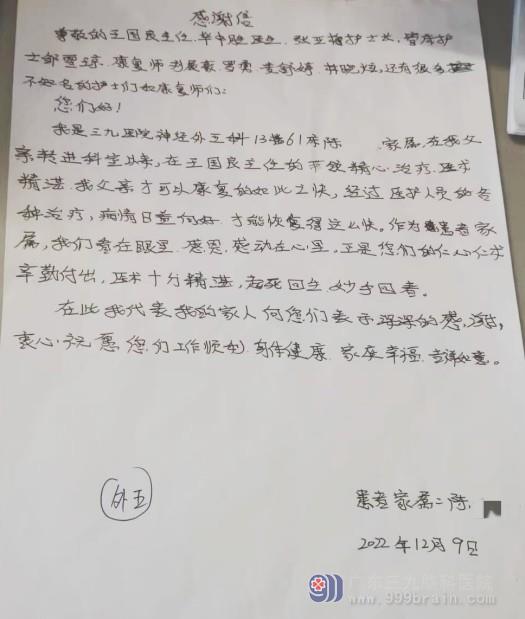 感谢信
尊敬的王国良主任、华中胜医生、张亚梅护士长、管床护
士邹雪琼、康复师刘展豪、罗勇、黄舒婷、井晓炫，还有很多
不知名的护士们和康复师们：
您们好！
我是三九医院神经外五科13楼61床陈 家属，在我父
亲转进科室以来，在王国良主任的带领精心治疗，医术
精湛，我父亲才可以康复的如此之快，经过医护人员的各
种治疗，病情日益向好，才能恢复得这么快。作为患者家
属，我们看在眼里，感恩、感动在心里，正是您们的仁心仁术
辛勤付出，医术十分精湛，起死回生，妙手回春。
在此我代表我的家人向您们表示深深的感谢，
衷心祝愿您们工作顺利、身体健康、家庭幸福、吉祥如意。
外五
患者家属：陈
2022年12月9日
广东三九脑科医院
www.999brain.com